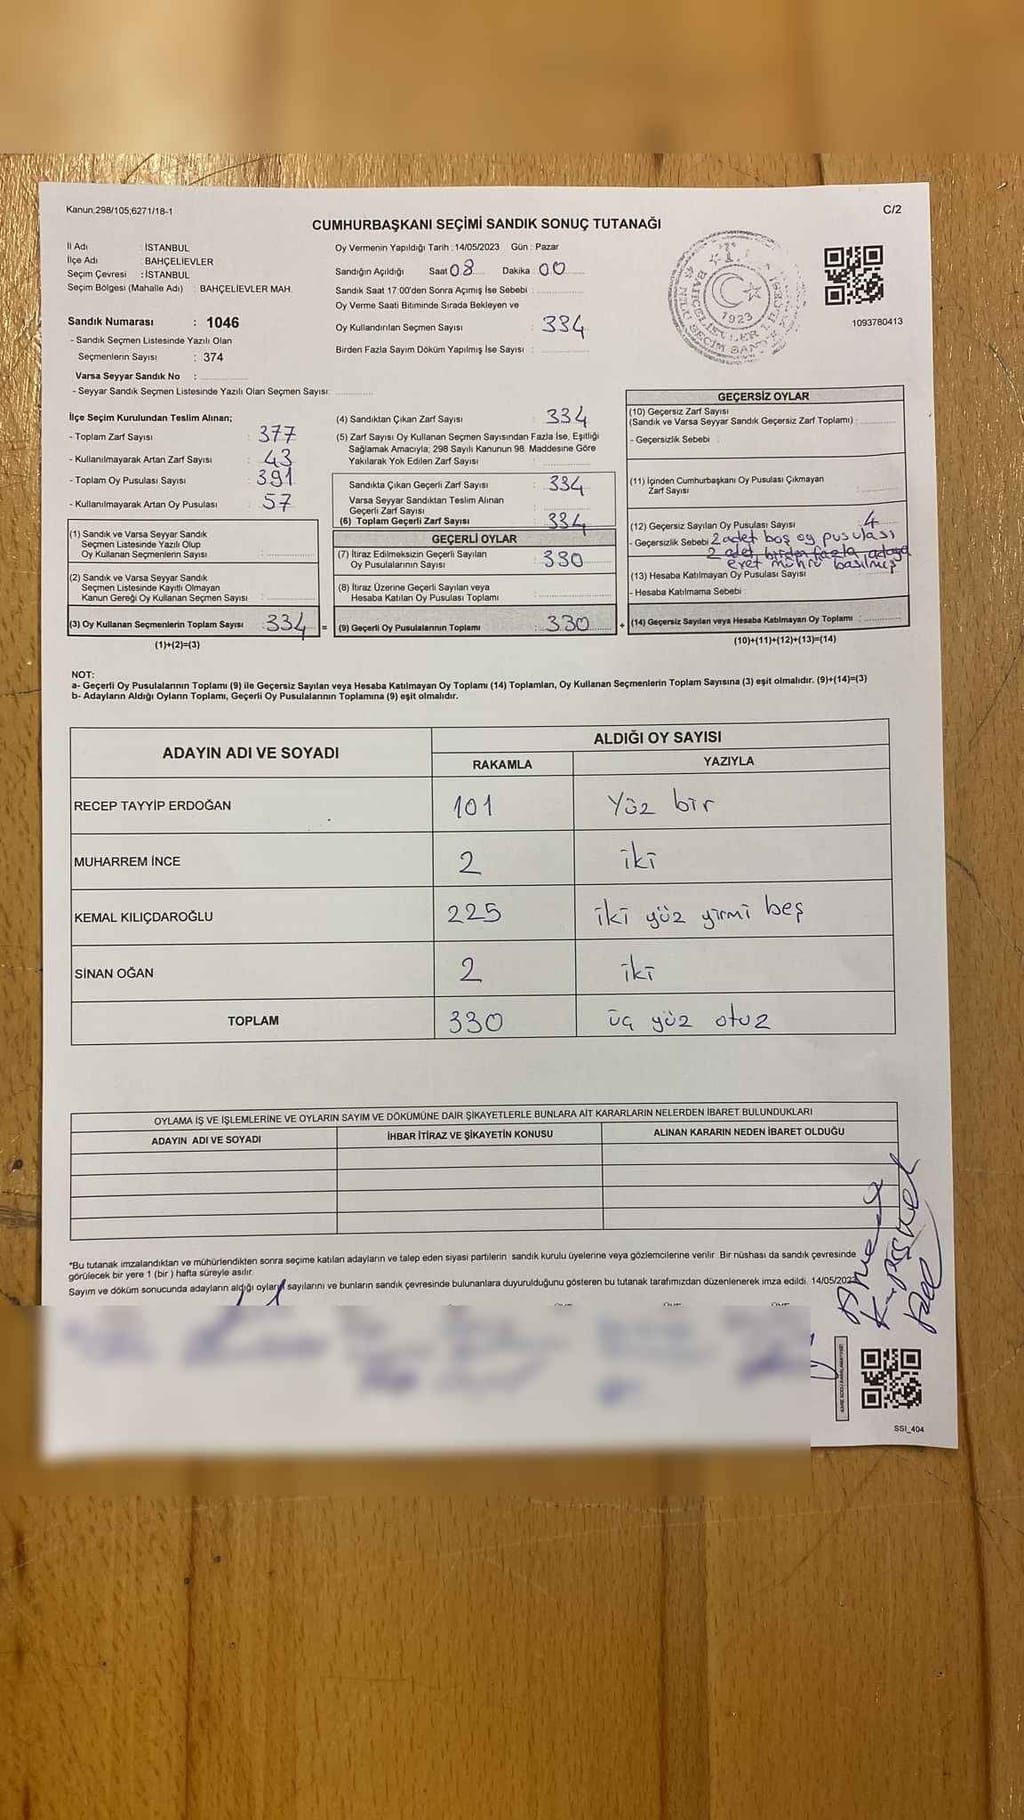 Kanun;298/105;6271/18-1
C/2
CUMHURBAŞKANI SEÇİMİ SANDIK SONUÇ TUTANAĞI
İl Adı : İSTANBUL
İlçe Adı : BAHÇELİEVLER
Seçim Çevresi : İSTANBUL
Seçim Bölgesi (Mahalle Adı) : BAHÇELİEVLER MAH.
Sandık Numarası : 1046
- Sandık Seçmen Listesinde Yazılı Olan
Seçmenlerin Sayısı : 374
Varsa Seyyar Sandık No :
- Seyyar Sandık Seçmen Listesinde Yazılı Olan Seçmen Sayısı:
Oy Vermenin Yapıldığı Tarih : 14/05/2023 Gün : Pazar
Sandığın Açıldığı Saat 08 Dakika 00
Sandık Saat 17:00'den Sonra Açımış İse Sebebi :
Oy Verme Saati Bitiminde Sırada Bekleyen ve
Oy Kullandırılan Seçmen Sayısı : 334
Birden Fazla Sayım Döküm Yapılmış İse Sayısı :
1923
1093780413
İlçe Seçim Kurulundan Teslim Alınan;
- Toplam Zarf Sayısı : 377
- Kullanılmayarak Artan Zarf Sayısı : 43
- Toplam Oy Pusulası Sayısı : 391
- Kullanılmayarak Artan Oy Pusulası : 57
(1) Sandık ve Varsa Seyyar Sandık
Seçmen Listesinde Yazılı Olup
Oy Kullanan Seçmenlerin Sayısı :
(2) Sandık ve Varsa Seyyar Sandık
Seçmen Listesinde Kayıtlı Olmayan
Kanun Gereği Oy Kullanan Seçmen Sayısı :
(3) Oy Kullanan Seçmenlerin Toplam Sayısı : 334 =
(1)+(2)=(3)
(4) Sandıktan Çıkan Zarf Sayısı : 334
(5) Zarf Sayısı Oy Kullanan Seçmen Sayısından Fazla İse, Eşitliği
Sağlamak Amacıyla; 298 Sayılı Kanunun 98. Maddesine Göre
Yakılarak Yok Edilen Zarf Sayısı :
Sandıkta Çıkan Geçerli Zarf Sayısı : 334
Varsa Seyyar Sandıktan Teslim Alınan
Geçerli Zarf Sayısı :
(6) Toplam Geçerli Zarf Sayısı : 334
GEÇERLİ OYLAR
(7) İtiraz Edilmeksizin Geçerli Sayılan
Oy Pusulalarının Sayısı : 330
(8) İtiraz Üzerine Geçerli Sayılan veya
Hesaba Katılan Oy Pusulası Toplamı :
(9) Geçerli Oy Pusulalarının Toplamı : 330 +
GEÇERSİZ OYLAR
(10) Geçersiz Zarf Sayısı
(Sandık ve Varsa Seyyar Sandık Geçersiz Zarf Toplamı) :
- Geçersizlik Sebebi :
(11) İçinden Cumhurbaşkanı Oy Pusulası Çıkmayan
Zarf Sayısı :
(12) Geçersiz Sayılan Oy Pusulası Sayısı : 4
- Geçersizlik Sebebi 2 adet boş oy pusulası
2 adet birden fazla adaya
evet mührü basılmış
(13) Hesaba Katılmayan Oy Pusulası Sayısı :
- Hesaba Katılmama Sebebi :
(14) Geçersiz Sayılan veya Hesaba Katılmayan Oy Toplamı :
(10)+(11)+(12)+(13)=(14)
NOT:
a- Geçerli Oy Pusulalarının Toplamı (9) ile Geçersiz Sayılan veya Hesaba Katılmayan Oy Toplamı (14) Toplamları, Oy Kullanan Seçmenlerin Toplam Sayısına (3) eşit olmalıdır. (9)+(14)=(3)
b- Adayların Aldığı Oyların Toplamı, Geçerli Oy Pusulalarının Toplamına (9) eşit olmalıdır.
ADAYIN ADI VE SOYADI
ALDIĞI OY SAYISI
RAKAMLA YAZIYLA
RECEP TAYYİP ERDOĞAN 101 Yüz bir
MUHARREM İNCE 2 iki
KEMAL KILIÇDAROĞLU 225 iki yüz yirmi beş
SİNAN OĞAN 2 iki
TOPLAM 330 üç yüz otuz
OYLAMA İŞ VE İŞLEMLERİNE VE OYLARIN SAYIM VE DÖKÜMÜNE DAİR ŞİKAYETLERLE BUNLARA AİT KARARLARIN NELERDEN İBARET BULUNDUKLARI
ADAYIN ADI VE SOYADI İHBAR İTİRAZ VE ŞİKAYETİN KONUSU ALINAN KARARIN NEDEN İBARET OLDUĞU
*Bu tutanak imzalandıktan ve mühürlendikten sonra seçime katılan adayların ve talep eden siyasi partilerin sandık kurulu üyelerine veya gözlemcilerine verilir. Bir nüshası da sandık çevresinde
görülecek bir yere 1 (bir ) hafta süreyle asılır.
Sayım ve döküm sonucunda adayların aldığı oyların sayılarını ve bunların sandık çevresinde bulunanlara duyurulduğunu gösteren bu tutanak tarafımızdan düzenlenerek imza edildi. 14/05/2023
SSI_404